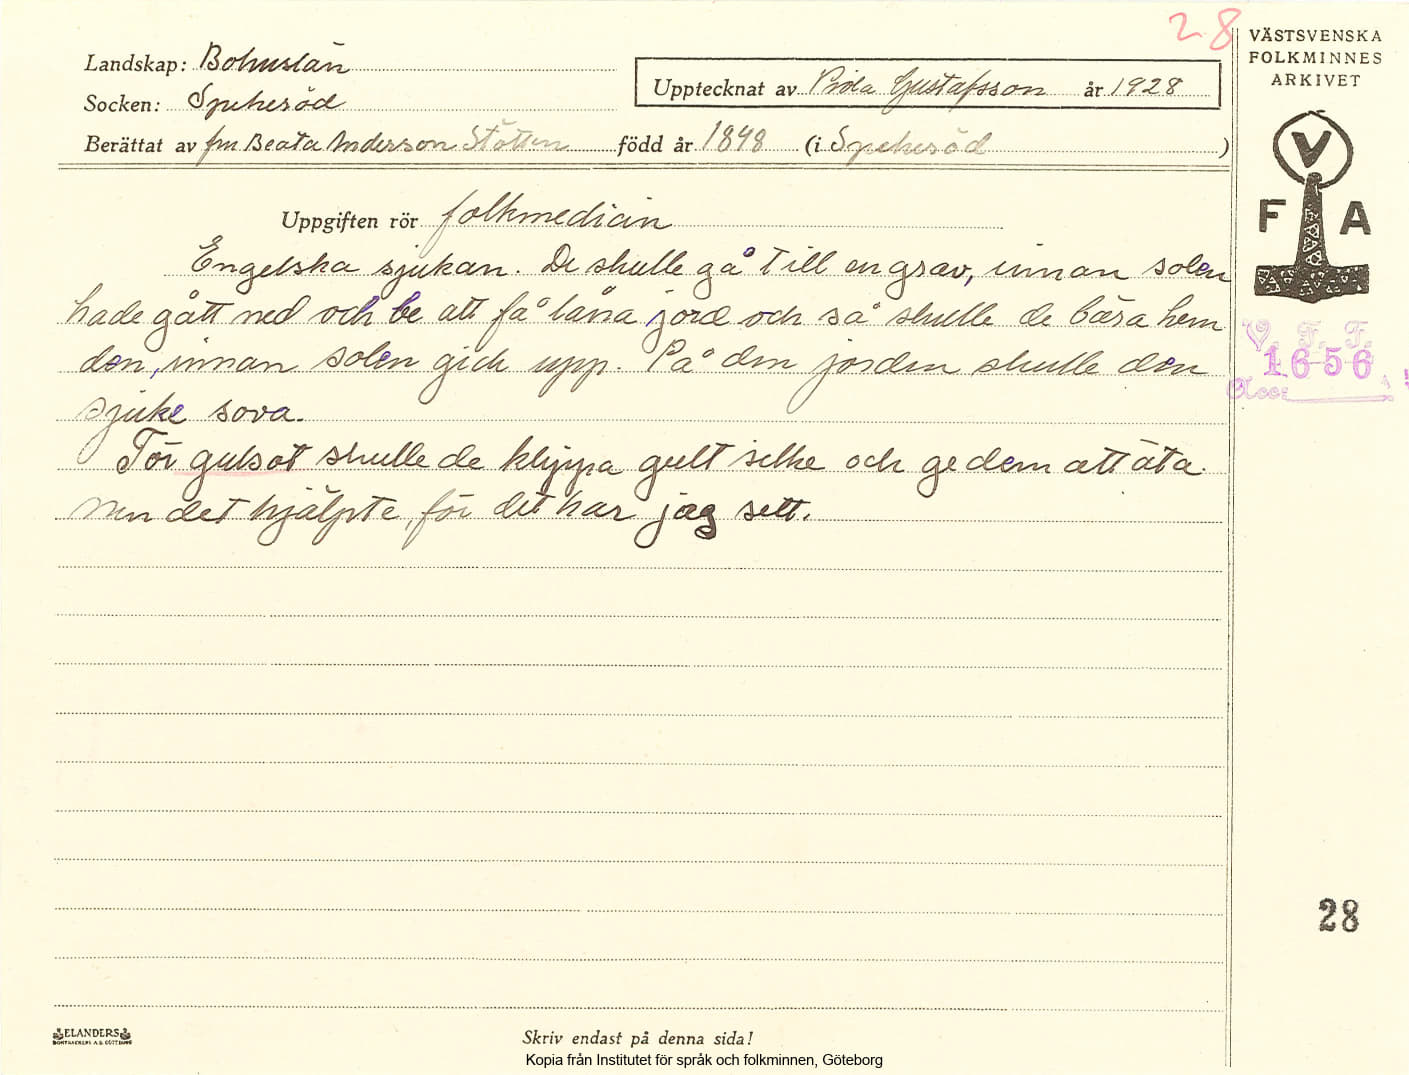 28
Landskap: Bohuslän
Socken: Spekeröd
Upptecknat av Gustafsson år 1928
Berättat av fru Beata Anderson Stötten född år 1848 (i Spekeröd )
Uppgiften rör folkmedicin
Engelska sjukan. De skulle gå till en grav, innan solen
hade gått ned och be att få låna jord och så skulle de bära hem
den, innan solen gick upp. På den jorden skulle den
sjuke sova.
För gulsot skulle de klippa gult silke och ge dem att äta.
Men det hjälpte, för det har jag sett.
VÄSTSVENSKA
FOLKMINNES
ARKIVET
V
F A
V. F. F.
1656
Acc:
28
ELANDERS
Skriv endast på denna sida!
Kopia från Institutet för språk och folkminnen, Göteborg